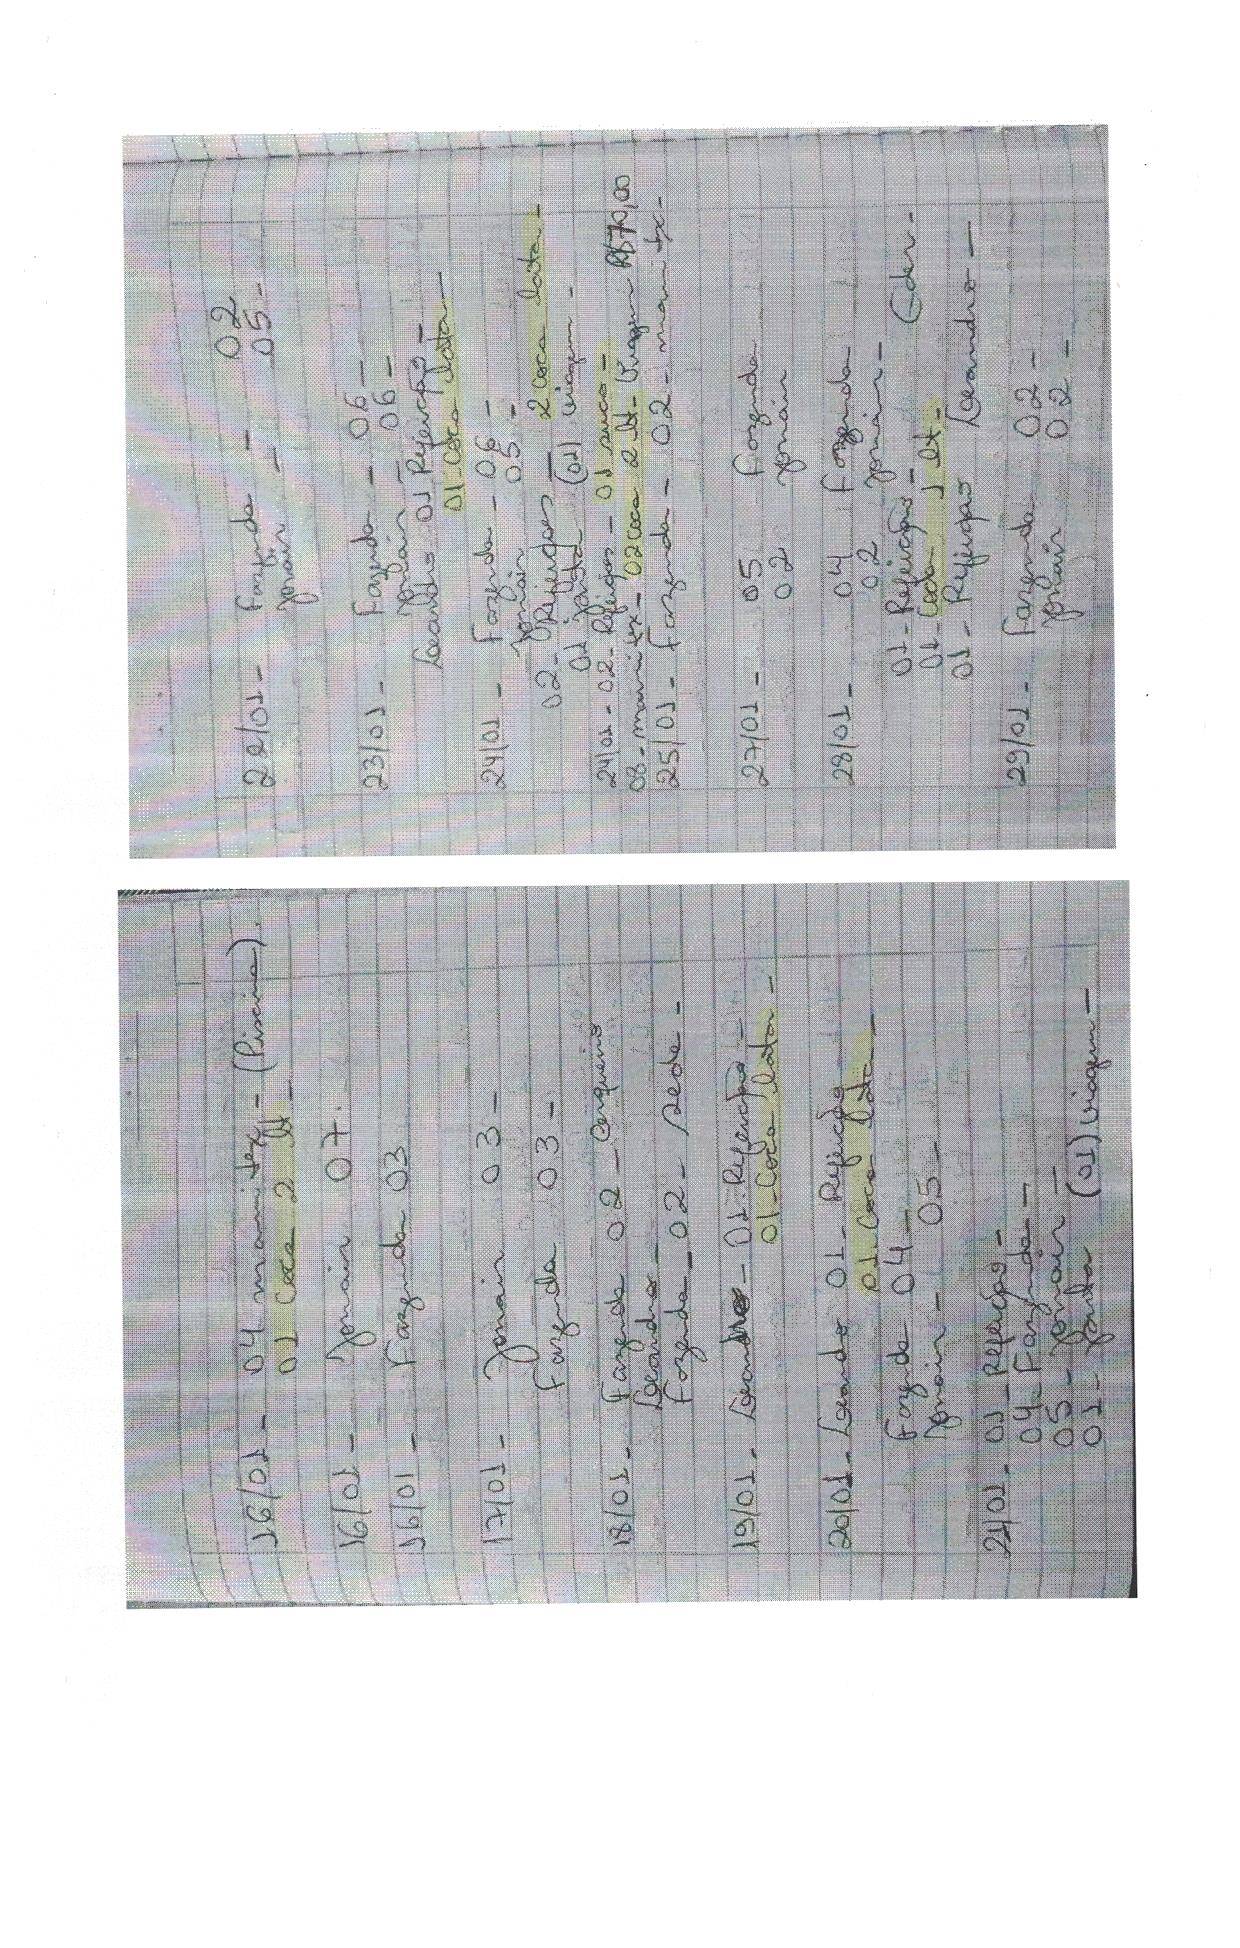 16/01 - 04 marmitex - (Piscina).
01 Coca 2 lt -
16/01 - Jonair 07.
16/01 - Fazenda 03
17/01 - Jonair 03 -
Fazenda 03 -
18/01 - Fazenda 02 - Cerqueiro
Leandro -
Fazenda - 02 - sede -
19/01 - Leandro - 01 - Refeição -
01 - Coca lata -
20/01 - Leandro 01 - Refeição
01 - Coca lata -
Fazenda 04 -
Jonair - 05 -
21/01 - 01 - Refeição -
04 - Fazenda -
05 - Jonair -
01 - Janta (01) viagem -
22/01 - Fazenda - 02
Jonair - 05 -
23/01 - Fazenda - 06 -
Jonair - 06 -
Leandro 01 Refeição -
01 - Coca lata -
24/01 - Fazenda - 06 -
Jonair 05 -
02 - Refeições - 2 Coca lata -
01 janta (01) viagem -
24/01 - 02 - Refeições - 01 suco -
08 - marmitex - 02 coca 2 lt - Viagem R$70,00
25/01 - Fazenda - 02 - marmitex -
27/01 - 05 Fazenda
02 Jonair
28/01 - 04 Fazenda
02 Jonair -
01 - Refeição - Eder -
01 - Coca 1 lt -
01 - Refeição Leandro -
29/01 - Fazenda 02 -
Jonair 02 -